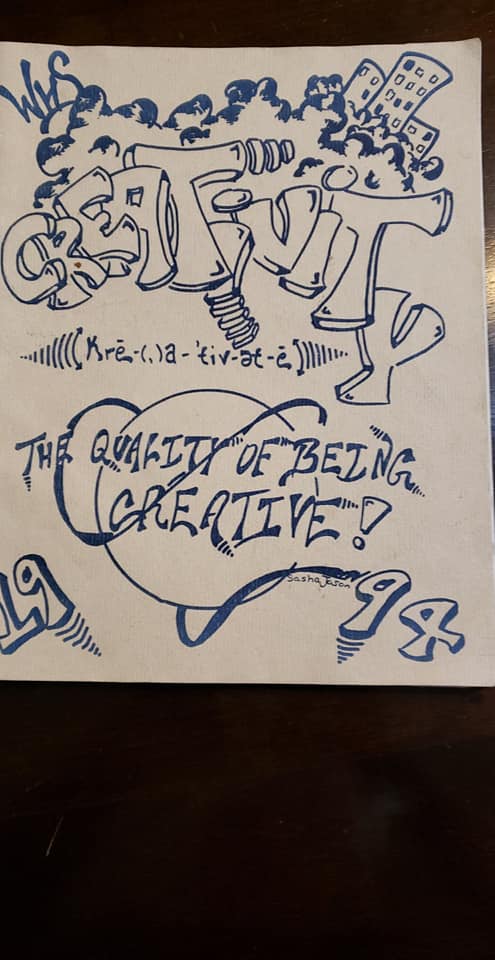 WLS
CREATIVITY
(Krē-(,)ā-'tiv-ət-ē)
THE QUALITY "OF" BEING
CREATIVE!
Sasha Jason
1994